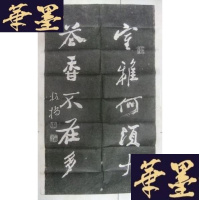 室雅何須大
茶香不在多
板橋
華墨
華墨